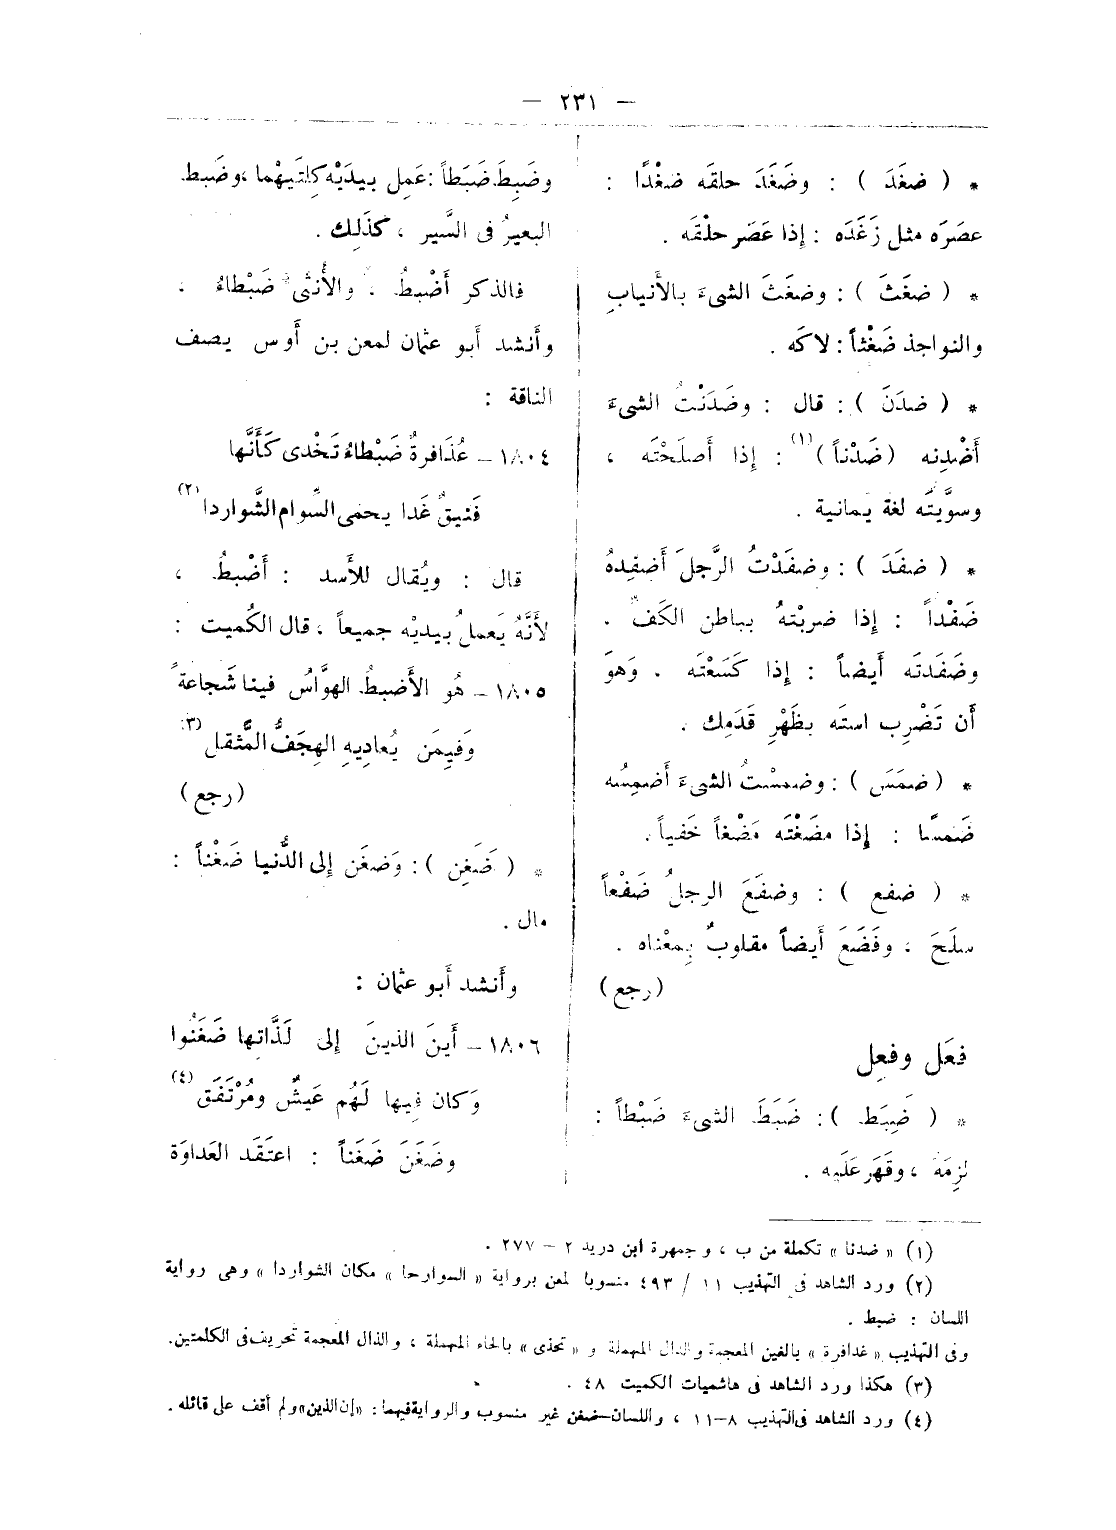 — ٢٣١ —
* ( ضغَدَ ) : وضَغَدَ حلقَه ضغْدًا :
عصَرَه مثل زَغَدَه : إذا عَصَر حلْقَه .
* ( ضغَثَ ) : وضغَثَ الشىءَ بالأَنيابِ
والنواجذ ضَغْثاً : لاكَه .
* ( ضدَنَ ) : قال : وضَدَنْتُ الشىءَ
أَضْدِنه (ضَدْناً)(١) : إذا أَصلَحْتَه ،
وسوَّيتَه لغة يمانية .
* ( ضفَدَ ) : وضفَدْتُ الرَّجلَ أَضفِدهُ
ضَفْداً : إذا ضربْتهُ بباطن الكَف .
وضَفَدتَه أَيضاً : إذا كَسَعْتَه . وَهوَ
أَن تَضْرِب استَه بظَهْرِ قَدَمِك .
* ( ضمَسَ ) : وضمسْتُ الشىءَ أَضمِسُه
ضَمسًا : إذا مضَغْتَه مَضْغاً خَفياً .
* ( ضفع ) : وضفَعَ الرجلُ ضَفْعاً
سلَحَ ، وفَضَعَ أَيضاً مقلوبٌ بِمعْناه .
(رجع)
فعَل وفعِل
* ( ضَبِط ) : ضَبَطَ الشىءَ ضَبْطاً :
لزِمَهَ ، وقَهَر عَلَيه .
وضَبِطَ ضَبَطاً : عَمِل بيدَيْه كِلتَيهْما ، وضَبط
البعيرُ فى السَّير ، كذَلِك .
فالذكر أَضْبطُ ، والأُنثَى ضَبْطاءُ .
وأَنشد أَبو عثمان لمعن بن أَوس يصف
الناقة :
١٨٠٤ – عُذَافرةٌ ضَبْطاءُ تَخْدى كَأَنَّها
فَنيقٌ غَدا يحمى السَّوام الشَّواردا(٢)
قال : ويُقال للأَسد : أَضْبطُ ،
لأَنَّهُ يَعملُ بيديْه جميعاً ، قال الكُميت :
١٨٠٥ – هُو الأَضبطُ الهوَّاسُ فينا شَجاعةً
وَفيِمَن يُعادِيهِ الهِجَفُّ المُثقل(٣)
(رجع)
* ( ضَغِن ) : وَضغَن إلى الدُّنيا ضَغْناً :
مال .
وأَنشد أَبو عثمان :
١٨٠٦ – أَينَ الذينَ إلى لَذَّاتِها ضَغَنُوا
وَكان فِيها لَهُم عَيشٌ ومُرْتَفَق(٤)
وضَغَنَ ضَغَناً : اعتَقَد العَداوَة
(١) « ضدنا » تكملة من ب ، وجمهرة ابن دريد ٢ – ٢٧٧ .
(٢) ورد الشاهد فى التهذيب ١١ / ٤٩٣ منسوبا لمعن برواية « السوارحا » مكان الشواردا » وهى رواية
اللسان : ضبط .
وفى التهذيب « غدافرة » بالغين المعجمة والدال المهملة و « تحذى » بالحاء المهملة ، والذال المعجمة تحريف فى الكلمتين.
(٣) هكذا ورد الشاهد فى هاشميات الكميت ٤٨ .
(٤) ورد الشاهد فى التهذيب ٨–١١ ، واللسان–ضغن غير منسوب والرواية فيهما : «إن الذين» ولم أقف على قائله .